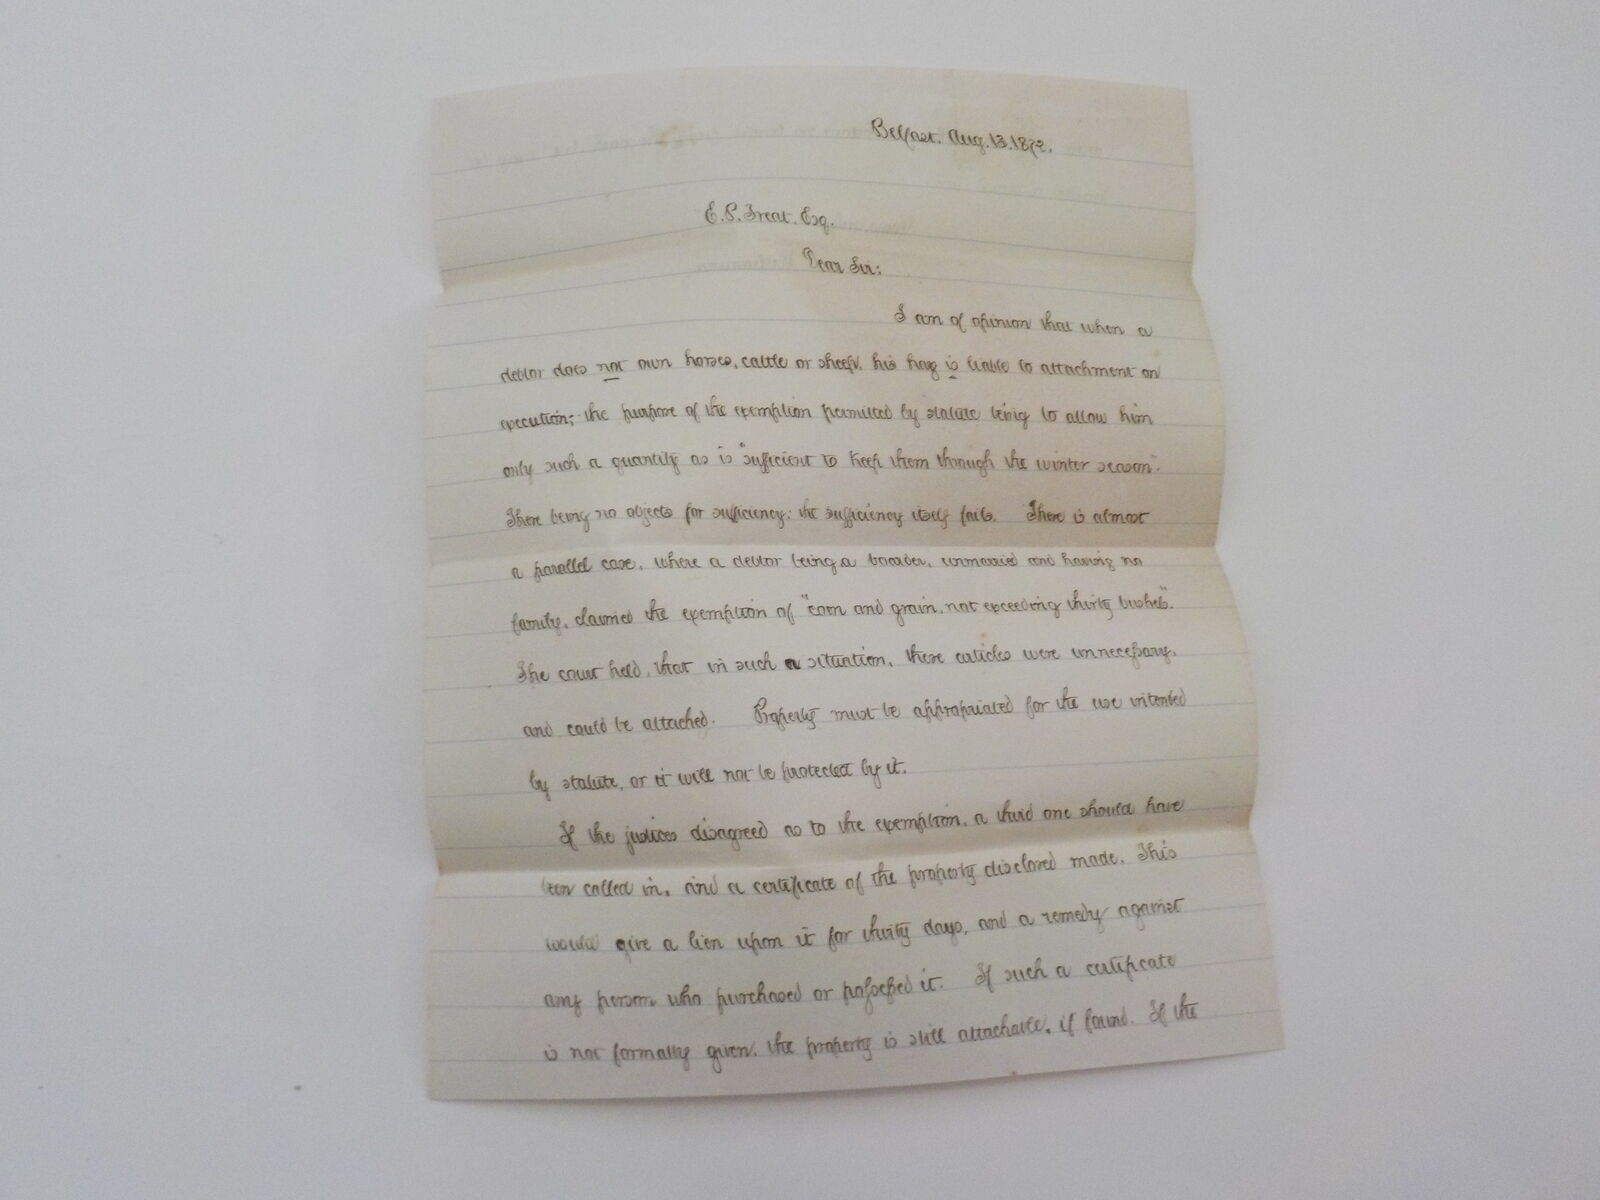 Belfast. Aug. 13. 1872.
E. P. Treat. Esq.
Dear Sir:
I am of opinion that when a
debtor does not own horses, cattle or sheep, his hay is liable to attachment on
execution; the purpose of the exemption permitted by statute being to allow him
only such a quantity as is "sufficient to keep them through the winter season".
There being no objects for sufficiency; the sufficiency itself fails. There is almost
a parallel case, where a debtor being a boarder, unmarried and having no
family, claimed the exemption of "corn and grain, not exceeding thirty bushels".
The court held, that in such a situation, these articles were unnecessary,
and could be attached. Property must be appropriated for the use intended
by statute, or it will not be protected by it.
If the justices disagreed as to the exemption, a third one should have
been called in, and a certificate of the property disclosed made. This
would give a lien upon it for thirty days, and a remedy against
any person who purchased or it. If such a certificate
is not formally given, the property is still attachable, if found. If the